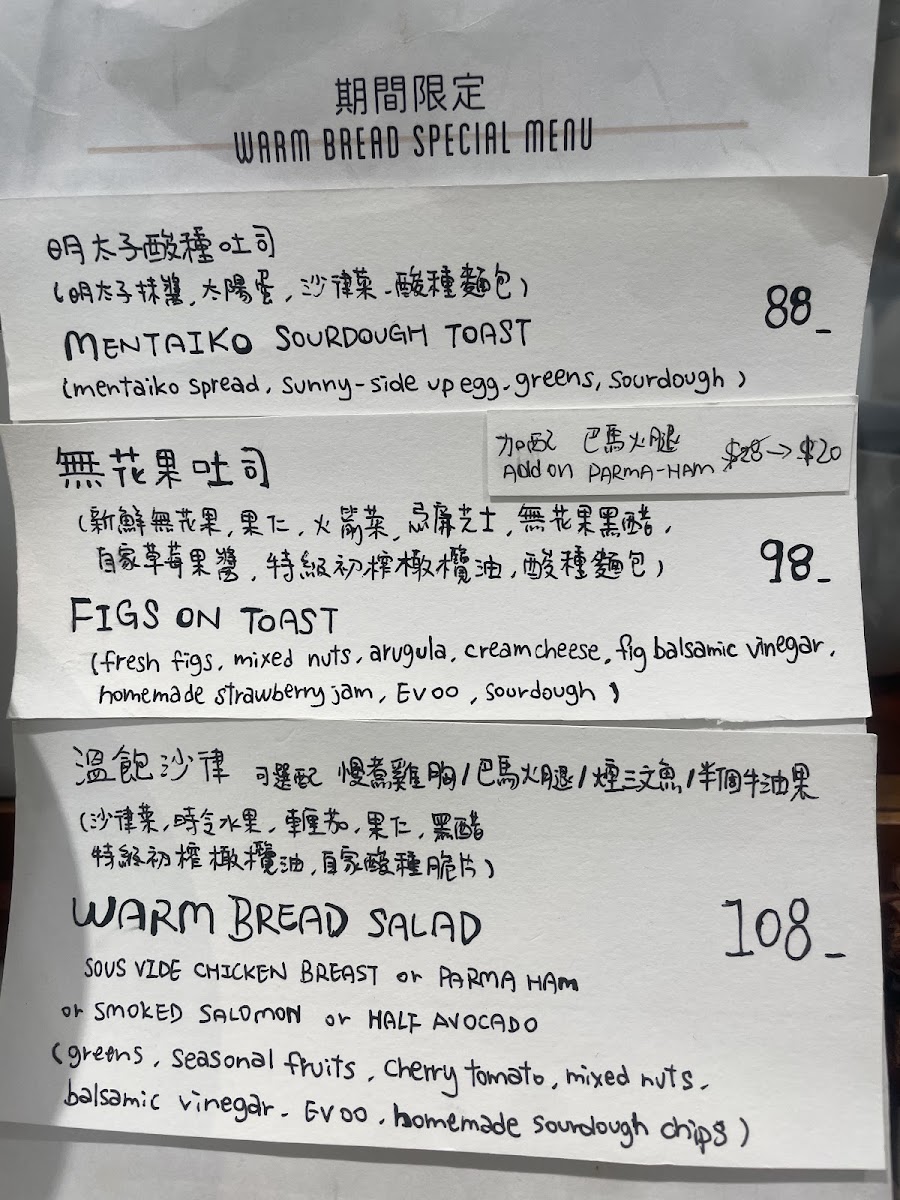 期間限定
WARM BREAD SPECIAL MENU
明太子酸種吐司
(明太子抹醬,太陽蛋,沙律菜-酸種麵包)
88_
MENTAIKO SOURDOUGH TOAST
(mentaiko spread, sunny-side up egg, greens, sourdough)
加配 巴馬火腿
Add on PARMA-HAM $28→$20
無花果吐司
(新鮮無花果,果仁,火箭菜,忌廉芝士,無花果黑醋,
自家草莓果醬,特級初榨橄欖油,酸種麵包)
98_
FIGS ON TOAST
(fresh figs, mixed nuts, arugula, creamcheese, fig balsamic vinegar,
homemade strawberry jam, EVOO, sourdough)
溫飽沙律 可選配 慢煮雞胸/巴馬火腿/煙三文魚/半個牛油果
(沙律菜,時令水果,車厘茄,果仁,黑醋
特級初榨橄欖油,自家酸種脆片)
WARM BREAD SALAD
108_
SOUS VIDE CHICKEN BREAST or PARMA HAM
or SMOKED SALOMON or HALF AVOCADO
(greens, seasonal fruits, cherry tomato, mixed nuts,
balsamic vinegar, EVOO, homemade sourdough chips)